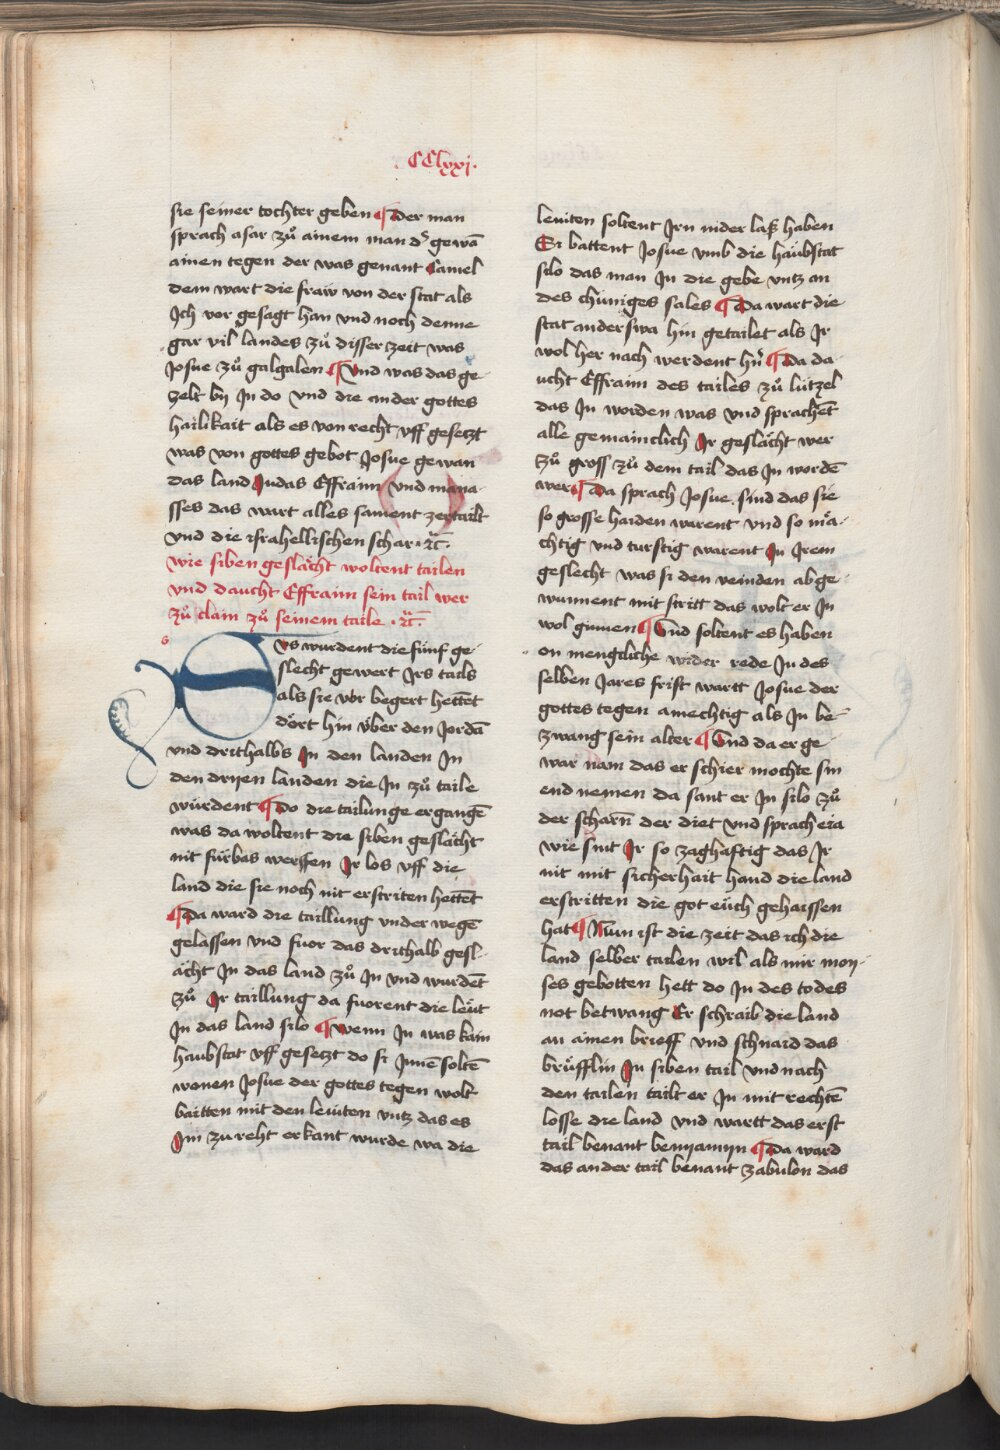 CClxxj.
sie seiner tochter geben ¶ Der man
sprach asar zů ainem man dˢ gewā
ainen tegen der was genant Camel
dem wart die fraw von der stat als
Ich vor gesagt han vnd noch denne
gar vil landes zů disser zeit was
Josue zů galgalen ¶ Vnd was das ge-
zelt by In do vnd die ander gottes
hailikait als es von recht vff gesetzt
was von gottes gebot Josue gewan
das land Judas Effraim vnd mana-
sses das wart alles sament zertailt
vnd die israhellischen schar. ꝛc̄.
wie siben geslächt woltent tailen
vnd daucht Effraim sein tail wer
zů clain zů seinem taile . ꝛc̄.
s
Vs wurdent die fünf ge-
slecht gewert Irs tails
als sie vor begert hettēt
dört hin v̈ber den Jordā
vnd drithalbs In den landen In
den dryen landen die In zů taile
würdent ¶ Do die tailunge ergangē
was da woltent die siben geslächt
nit fürbas werffen Ir los vff die
land die sie noch nit erstriten hettēt
¶ Da ward die taillung vnder wegē
gelassen vnd fuor das drithalb gesl-
ächt In das land zů In vnd wurdēt
zů Ir taillung da fuorent die leüt
In das land silo ¶ Wenn In was kain
haubstat vff gesetzt do si Innē soltē
wonen Josue der gottes tegen wolt
baitten mit den leuiten vntz das es
Im zu reht erkant wurde wa die
leuiten soltent Irn nider laß haben
Er battent Josue vmb die häubstat
silo das man In die gebe vntz an
des chüniges sales ¶ Da wart die
stat anderswa hin getailet als Ir
wol her nach werdent hn̄ ¶ Da da-
ucht Effraim des tailes zů lützel
das In worden was vnd sprachēt
alle gemainclich Ir geslächt wer
zů gross zů dem tail das In wordē
wer ¶ Da sprach Josue sind das sie
so grosse haiden warent vnd so mä-
chtig vnd turstig warent In Irem
geslecht was si den veinden abge-
wunnent mit stritt das wolt er In
wol gunnen ¶ Vnd soltent es haben
on mengcliche wider rede In des
selben Jares frist wartt Josue der
gottes tegen amechtig als In be-
zwang sein alter ¶ Vnd da er ge-
war nam das er schier mochte sin
end nemen da sant er In silo zů
der scharn der diet vnd sprach eia
wie sint Ir so zaghaftig das Ir
nit mit sicherhait hand die land
erstritten die got eüch gehaissen
hat ¶ Nun ist die zeit das ich die
land selber tailen wil als mir moy-
ses gebotten hett do In des todes
not betwang Er schraib die land
an ainen brieff vnd schnaid das
brüfflin In siben tail vnd nach
den tailen tailt er In mit rechtē
losse die land vnd wartt das erst
tail benant benyamyn ¶ Da ward
das ander tail benant zabulon das